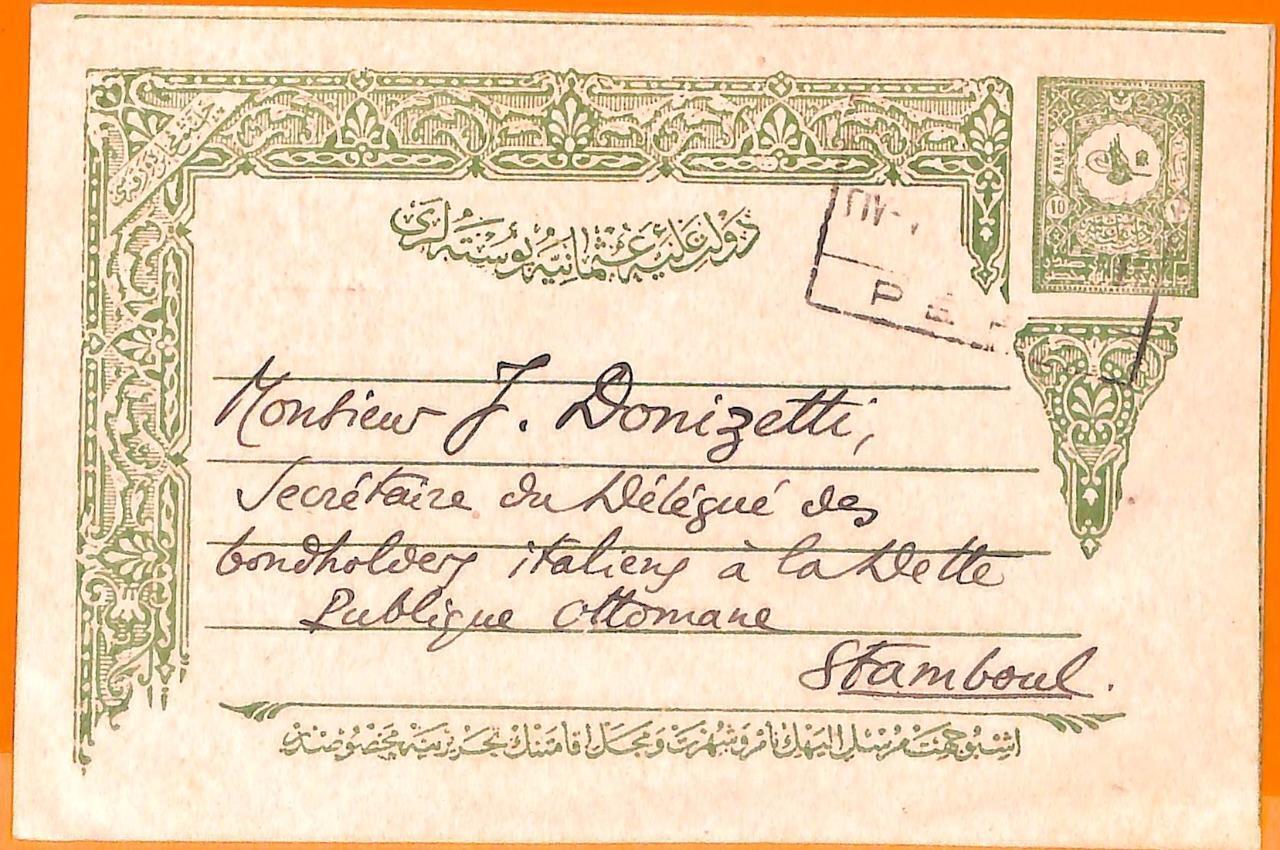 PARAS
10
دولت علیه عثمانیه پوسته لری
PÉ
Monsieur J. Donizetti,
Secrétaire du Délégué des
bondholders italiens à la Dette
Publique Ottomane
Stamboul.
اشبو جهت مرسل الیهك نام و شهرت و محل اقامتنك تحریرینه مخصوصدر